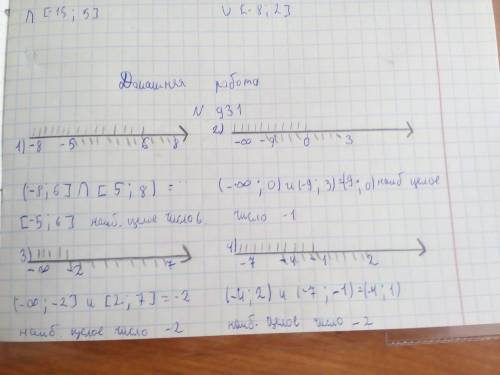 ∩ [-15; 5]
∪ [-8; 2]
Домашняя работа
N 931
1) -8 -5 6 8
2) -∞ -9 0 3
(-8; 6] ∩ [5; 8) =
[-5; 6] наиб. целое число 6.
(-∞; 0) и (-9; 3) = (-9; 0) наиб целое
число -1
3) -∞ -2 7
4) -7 -4 -1 2
(-∞; -2] и [2; 7] = -2
наиб целое число -2
(-4; 2) и (-7; -1) = (-4; 1)
наиб. целое число -2